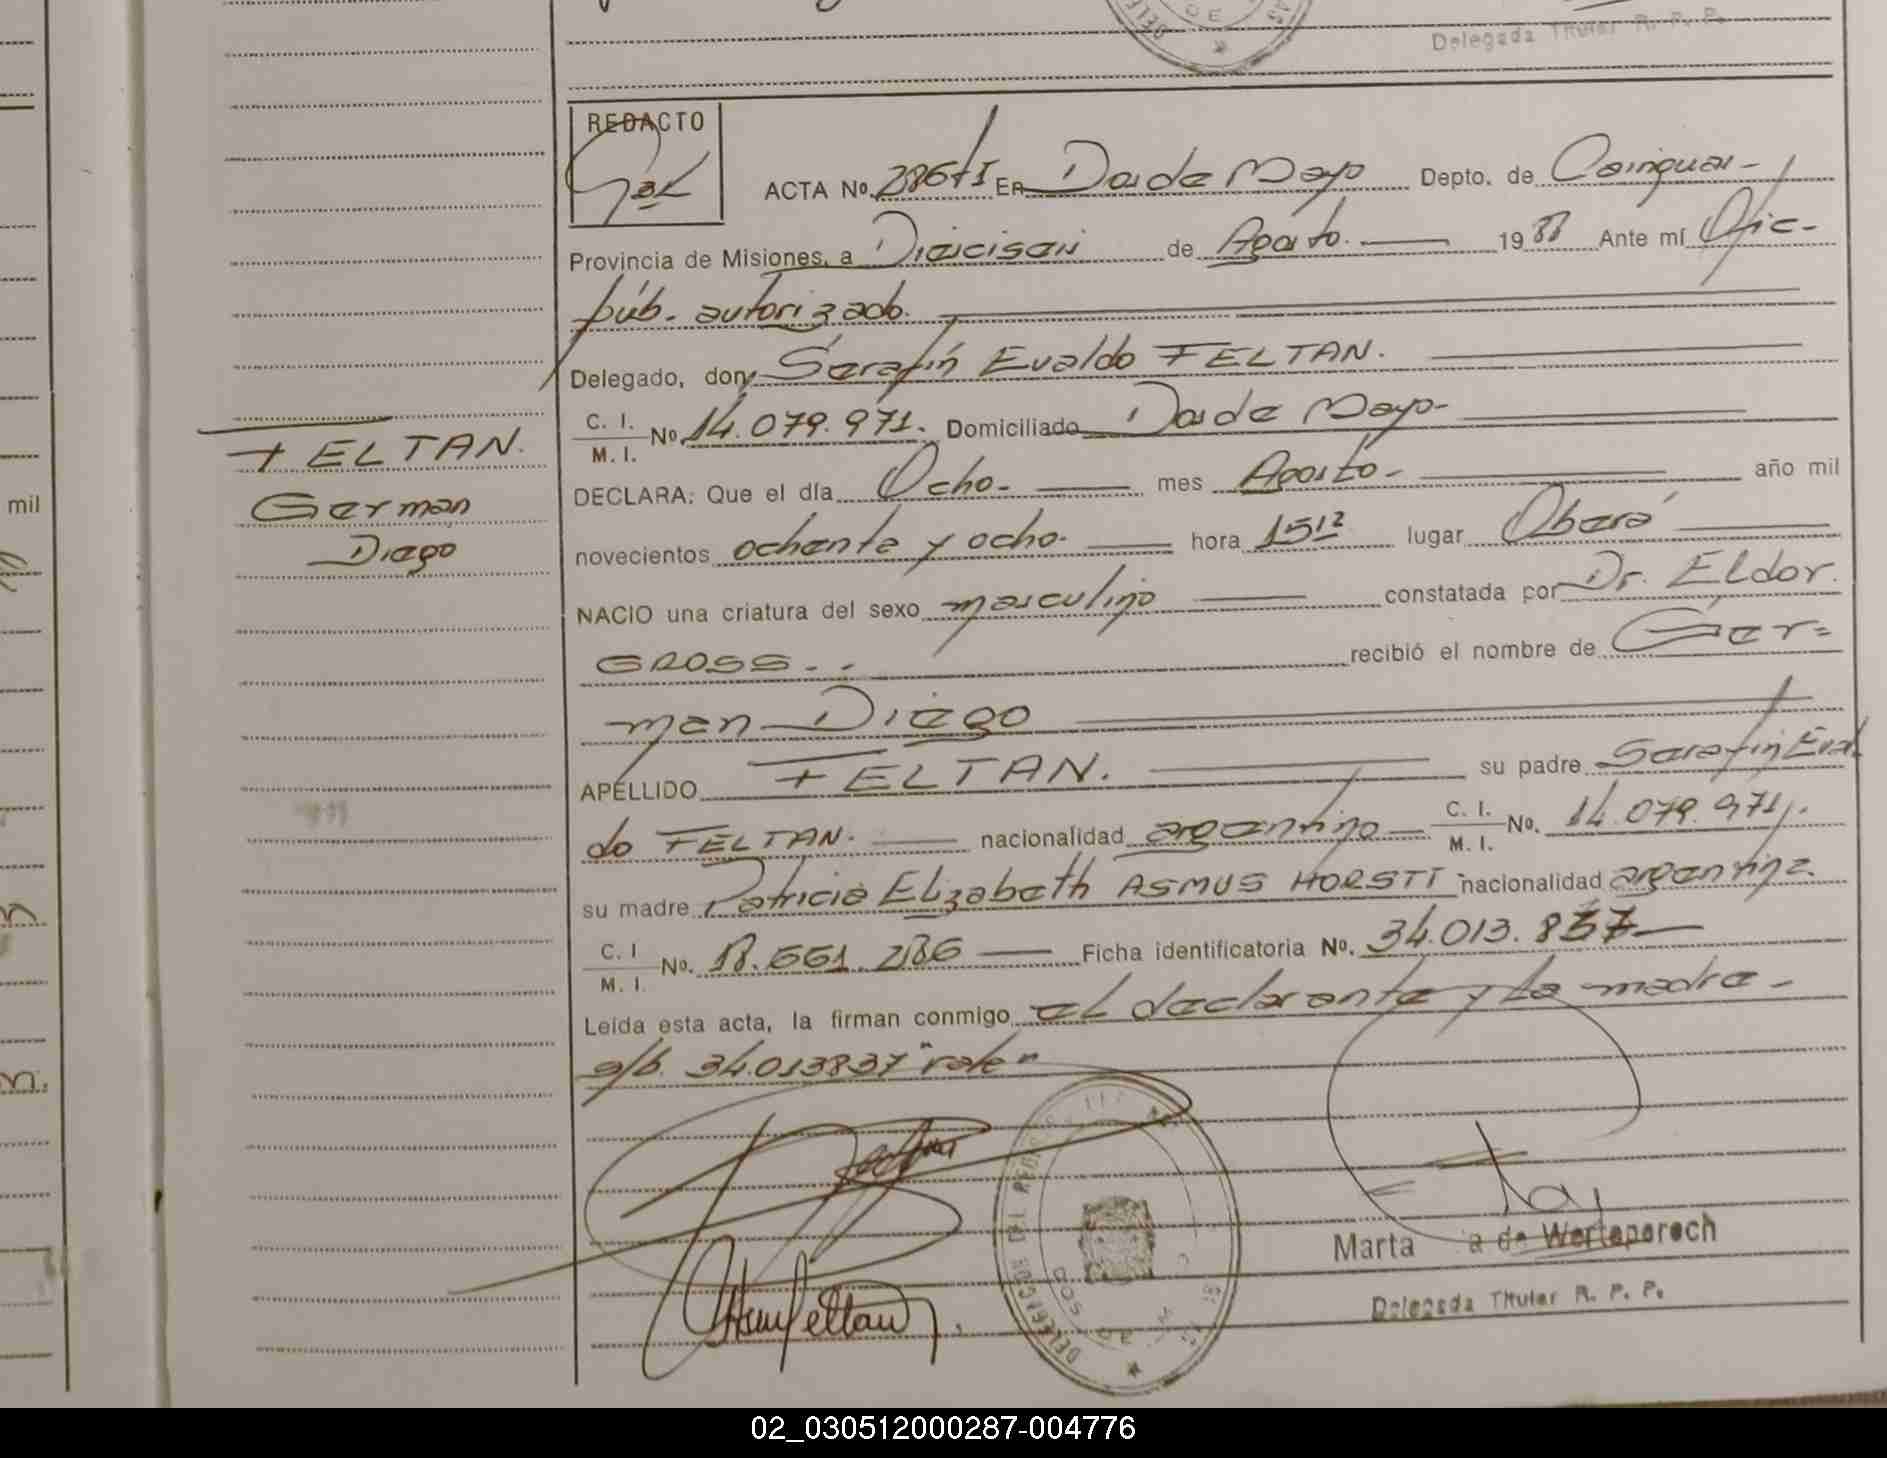 Delegada Titular R. P. P.
REDACTO
ACTA No. 286/I En Dos de Mayo Depto. de Cainguas-
Provincia de Misiones, a Dieciseis de Agosto. 1988 Ante mí Ofic-
púb. autorizado.
Delegado, don Serafín Evaldo FELTAN.
C. I.
M. I. No. 14.079.971. Domiciliado Dos de Mayo-
FELTAN.
German
Diego
DECLARA: Que el día Ocho- mes Agosto- año mil
novecientos ochenta y ocho. hora 15¹² lugar Oberá
NACIO una criatura del sexo masculino constatada por Dr. Eldor.
GROSS.. recibió el nombre de Ger=
man Diego
APELLIDO FELTAN. su padre Serafín Eval
do FELTAN. nacionalidad argentino C. I.
M. I. No. 14.079.971.
su madre Patricia Elizabeth ASMUS HORSTT nacionalidad argentina.
C. I
M. I. No. 18.661.286 Ficha identificatoria No. 34.013.837
Leída esta acta, la firman conmigo el declarante y la madre-
s/b. 34.013837 "vale"
Marta a de Werteperech
Delegada Titular R. P. P.
mil
02_030512000287-004776